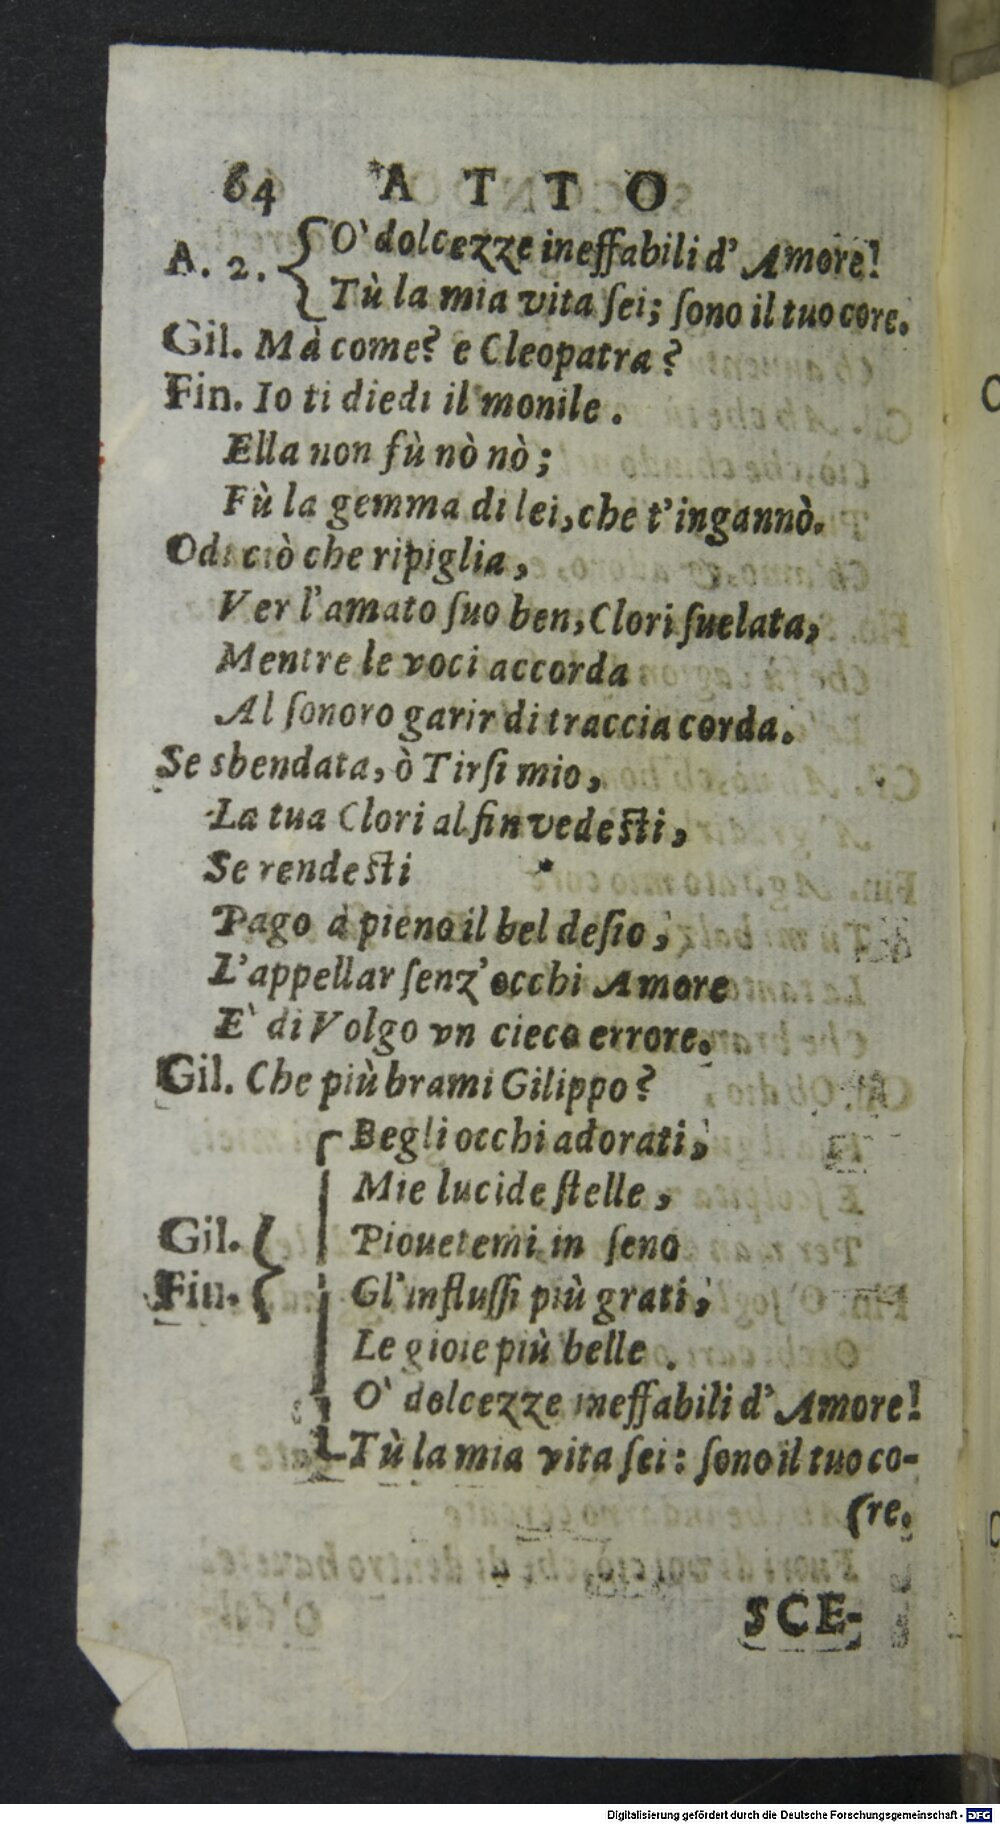 64 ATTO
A. 2. { O' dolcezze ineffabili d' Amore!
Tù la mia vita ſei; ſono il tuo core.
Gil. Mà come? e Cleopatra?
Fin. Io ti diedi il monile.
Ella non fù nò nò;
Fù la gemma di lei, che t'ingannò.
Odi ciò che ripiglia,
Ver l'amato ſuo ben, Clori ſuelata,
Mentre le voci accorda
Al ſonoro garir di traccia corda.
Se sbendata, ò Tirſi mio,
La tua Clori al fin vedeſti,
Se rendeſti
Pago a pieno il bel deſio;
L'appellar ſenz'occhi Amore
E' di Volgo vn cieco errore.
Gil. Che più brami Gilippo?
Begli occhi adorati;
Mie lucide ſtelle,
Gil. { Piouetemi in ſeno
Fin. Gl'influſſi più grati;
Le gioie più belle.
O' dolcezze ineffabili d' Amore!
Tù la mia vita ſei: ſono il tuo co-
(re.
SCE-
Digitalisierung gefördert durch die Deutsche Forschungsgemeinschaft - DFG